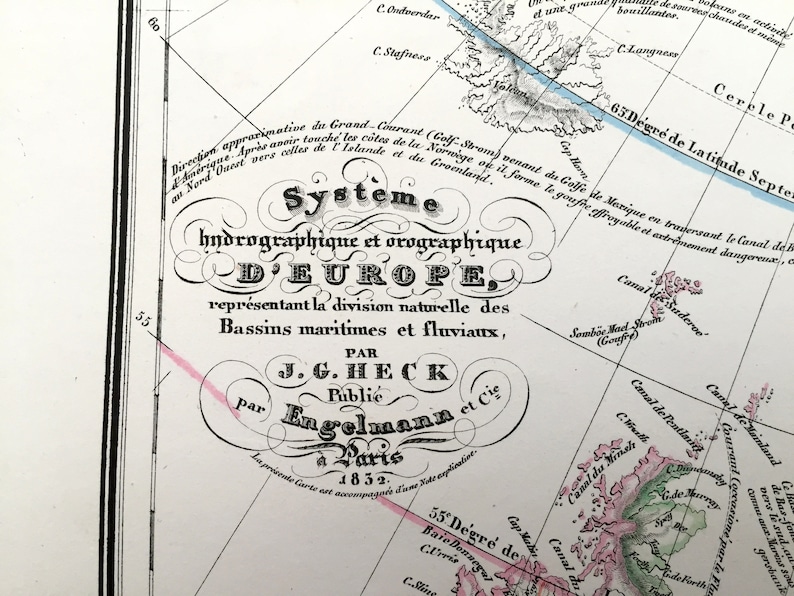 60
C. Ondverdar
C. Stafness
Volcan
C. Langness
Cap Horn
et une grande quantité de sources chaudes et même
bouillantes.
65 Dégré de Latitude Septen
Cercle Po
Direction approximative du Grand-Courant (Golf-Strom) venant du Golfe de Mexique en traversant le Canal de B
d'Amérique. Après avoir touché les côtes de la Norwège ou il forme le goufre effroyable et extrèmement dangereux,
au Nord Ouest vers celles de l'Islande et du Groenland.
Système
hydrographique et orographique
D'EUROPE,
représentant la division naturelle des
Bassins maritimes et fluviaux,
PAR
J. G. HECK
Publié
par Engelmann et Cie
à Paris
1832.
La présente Carte est accompagnée d'une Note explicative.
55
Canal de Suderoé
Somböe Mael-Strom
(Goufre)
Canal de Pentland
Canal de Mainland
C. Wrath
Canal du Minsh
C. Duncansby
G. de Murray
Spey
Dee
G. de Forth
55e Dégré de
Cap Malin
Baie Donnegal
C. Urris
C. Sline
Canal du